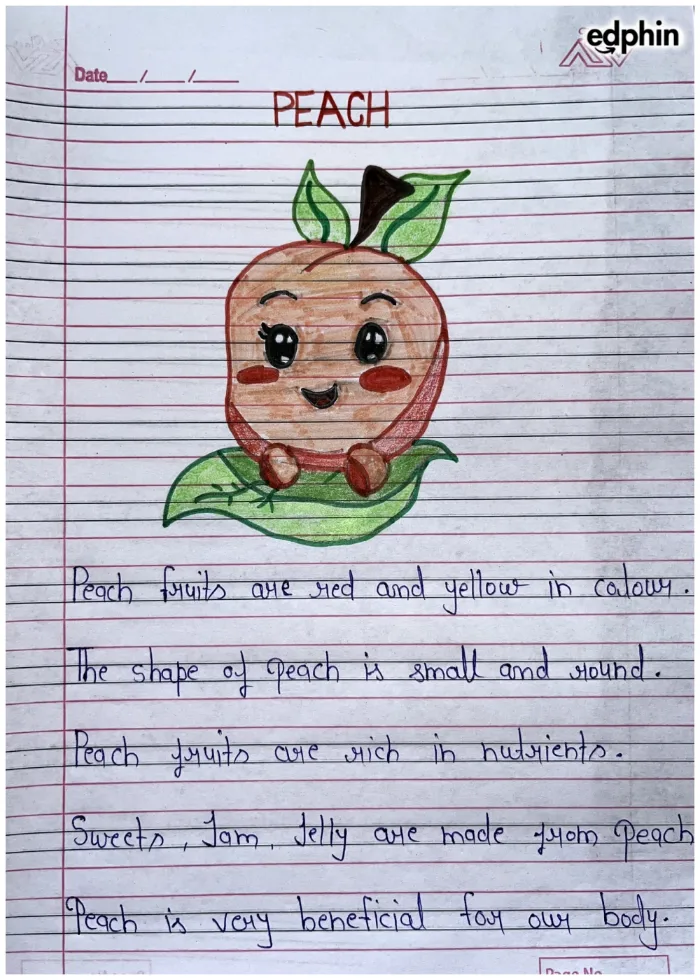 edphin
Date___/___/___
PEACH
Peach fruits are red and yellow in calour.
The shape of Peach is small and round.
Peach fruits are rich in nutrients.
Sweets, Jam, Jelly are made from Peach
Peach is very beneficial for our body.
Page No.